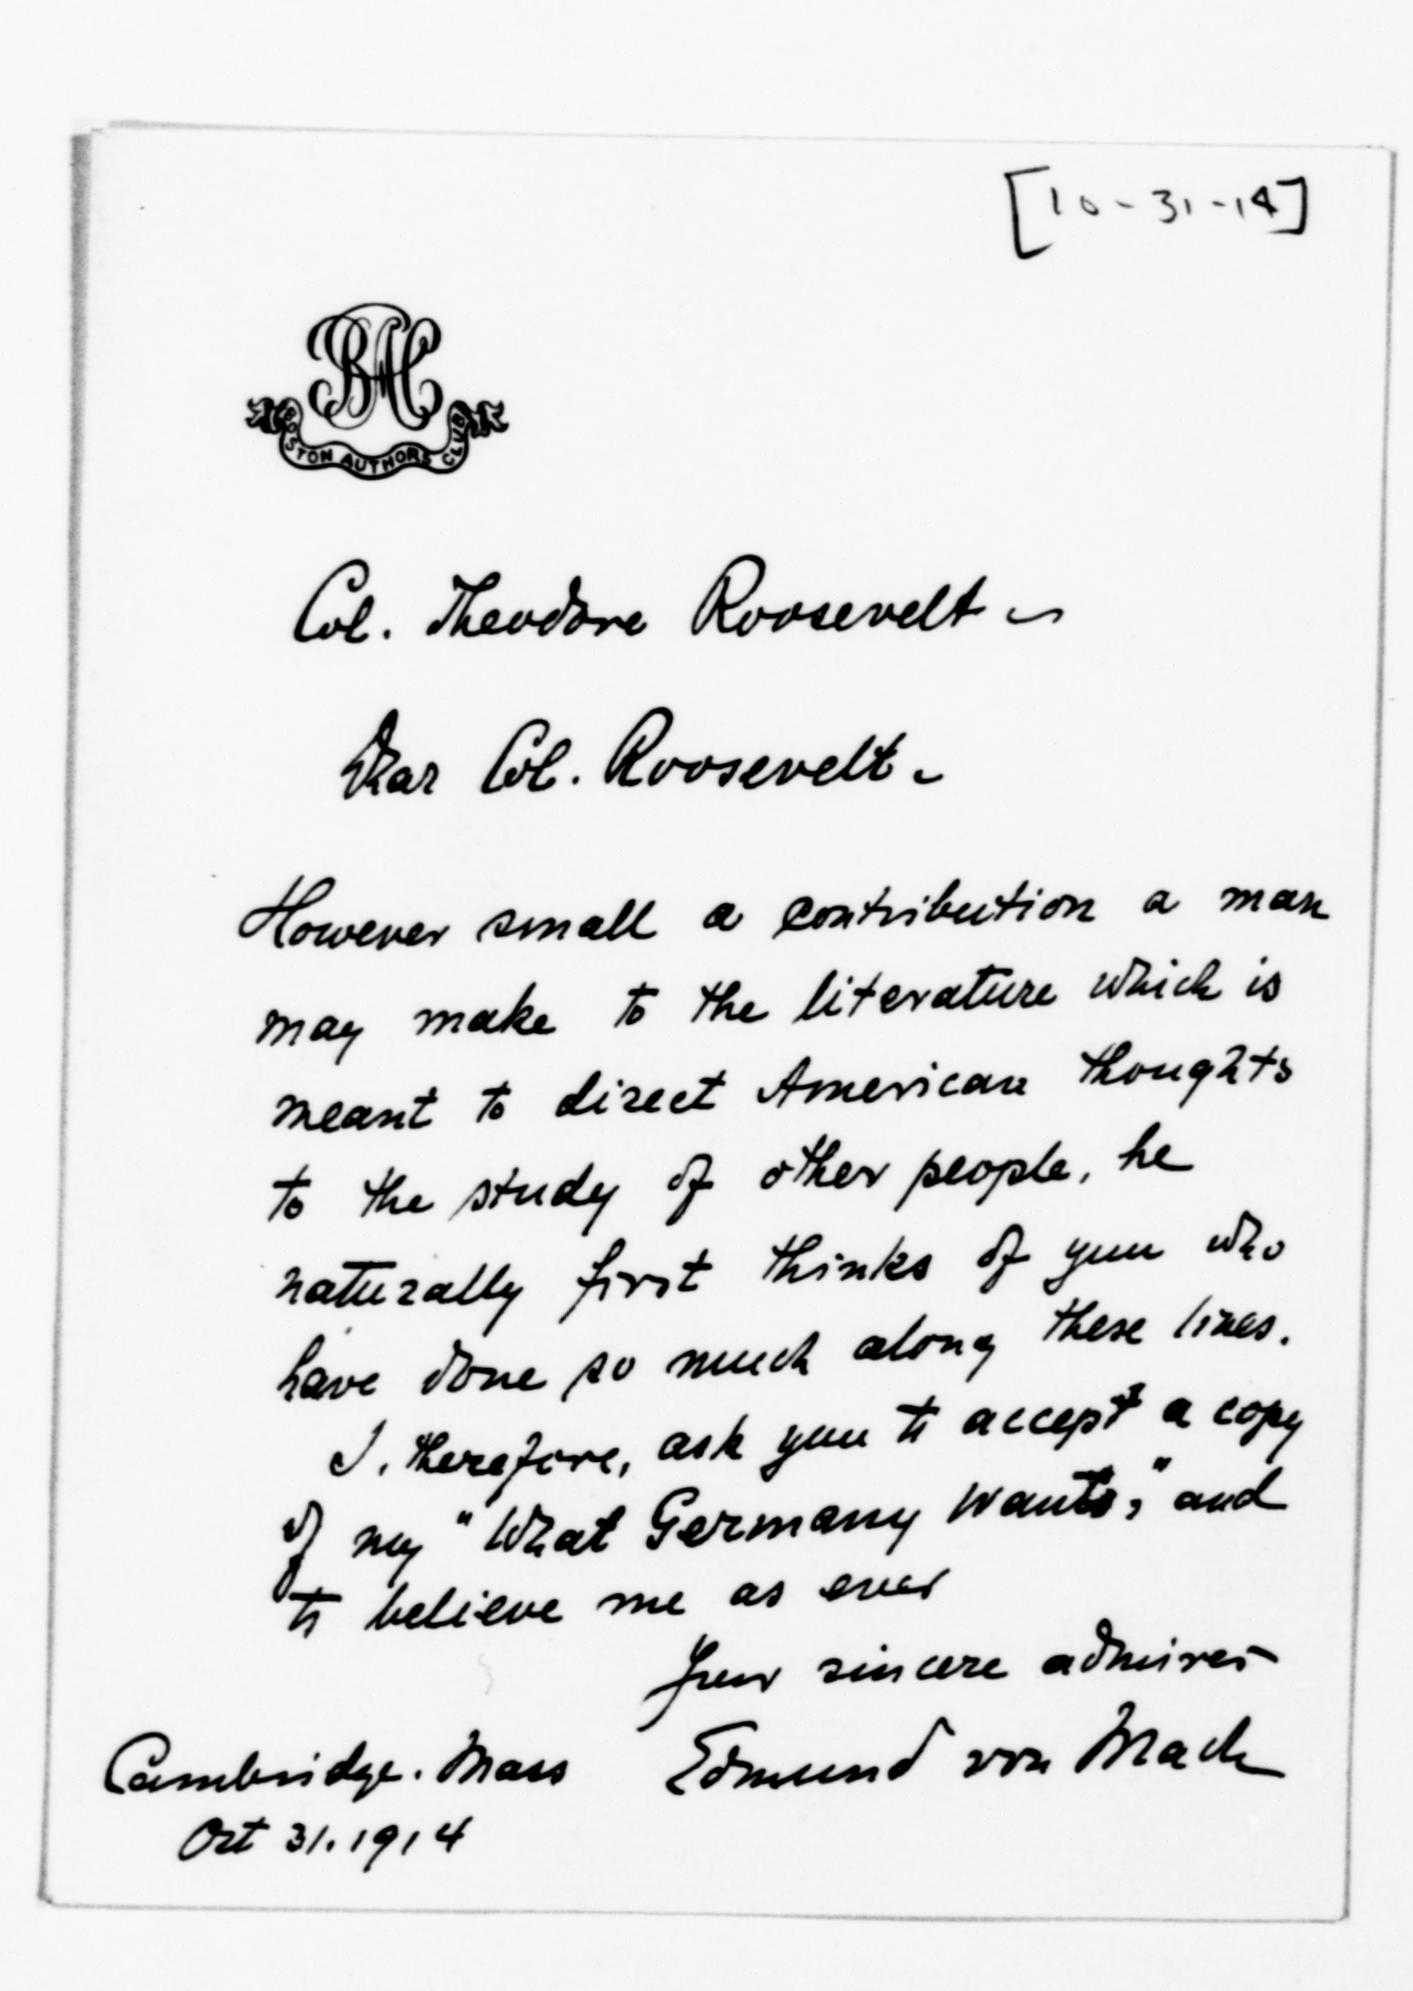 [10-31-14]
BAC
BOSTON AUTHORS CLUB
Col. Theodore Roosevelt -
Dear Col. Roosevelt -
However small a contribution a man
may make to the literature which is
meant to direct American thoughts
to the study of other people, he
naturally first thinks of you who
have done so much along these lines.
I, therefore, ask you to accept a copy
of my "What Germany Wants," and
to believe me as ever
Your sincere admirer
Edmund von Mach
Cambridge. Mass
Oct 31. 1914